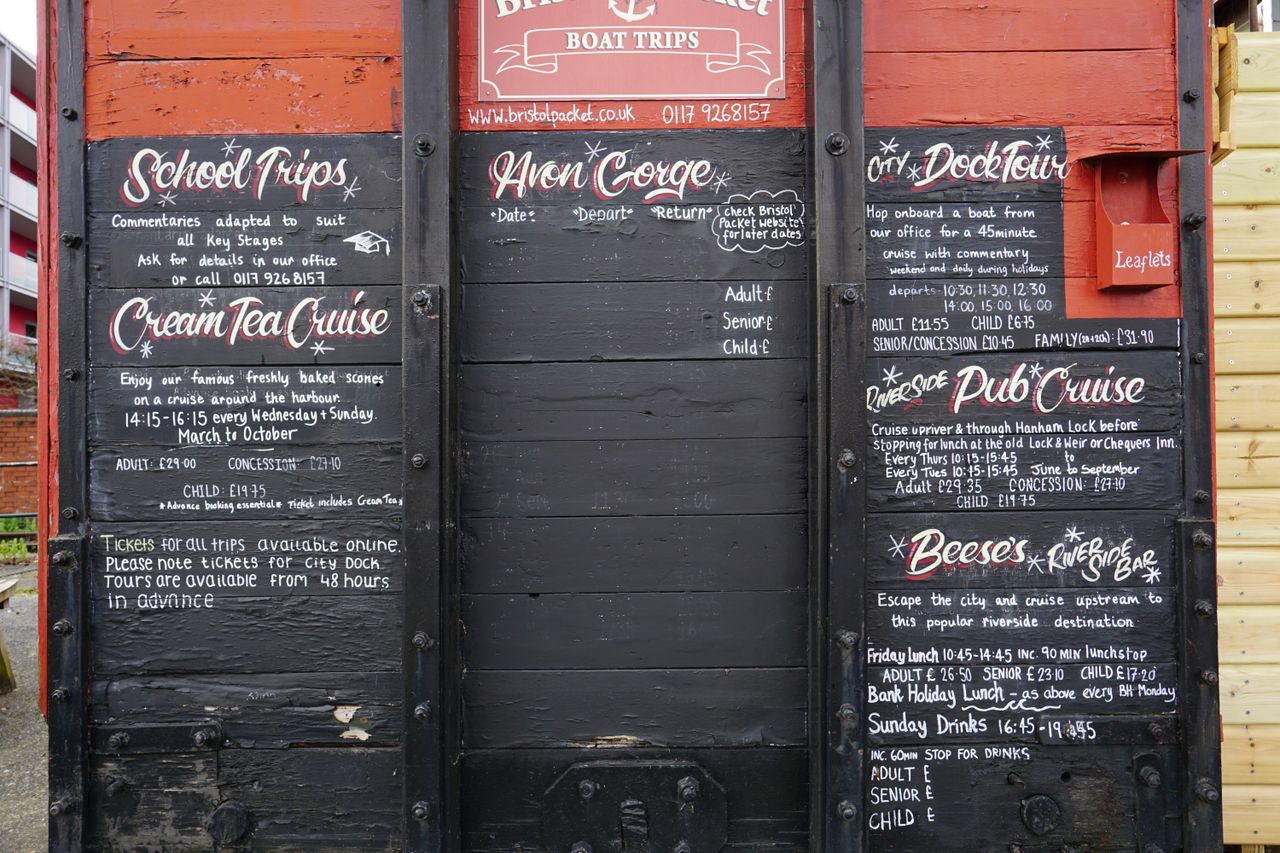 BOAT TRIPS
www.bristolpacket.co.uk 0117 9268157
School Trips
Commentaries adapted to suit
all Key Stages
Ask for details in our office
or call 0117 926 8157
Cream Tea Cruise
Enjoy our famous freshly baked scones
on a cruise around the harbour.
14:15-16:15 every Wednesday + Sunday.
March to October
ADULT: £29.00 CONCESSION: £27.10
CHILD: £19.75
*Advance booking essential* Ticket includes Cream Tea*
Tickets for all trips available online.
Please note tickets for City Dock
Tours are available from 48 hours
in advance
Avon Gorge
Date: Depart Return
Check Bristol
Packet website
for later dates
Adult: £
Senior: £
Child: £
City Dock Tour
Hop onboard a boat from
our office for a 45minute
cruise with commentary
weekend and daily during holidays
departs 10:30, 11:30, 12:30
14:00, 15:00, 16:00
ADULT £11.55 CHILD £6.75
SENIOR/CONCESSION £10.45 FAMILY (2A+2Ch): £31.90
Leaflets
Riverside Pub Cruise
Cruise upriver & through Hanham Lock before
stopping for lunch at the old Lock & Weir or Chequers Inn.
Every Thurs 10:15-15:45 to
Every Tues 10:45-15:45 June to September
Adult £29.35 CONCESSION: £27.10
CHILD £19.75
Beese's Riverside Bar
Escape the city and cruise upstream to
this popular riverside destination
Friday Lunch 10:45-14:45 INC. 90 MIN lunchstop
ADULT £26.50 SENIOR £23.10 CHILD £17.20
Bank Holiday Lunch - as above every BH Monday
Sunday Drinks 16:45-19:45
INC. 60MIN STOP FOR DRINKS
ADULT £
SENIOR £
CHILD £